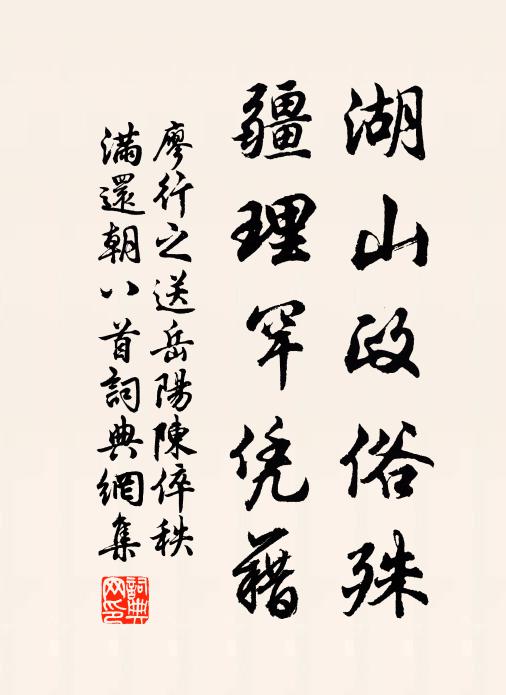 湖山政俗殊
疆理罕凭藉
廖行之送岳陽陳倅秩
滿還朝八首詞典網集
詞典網印